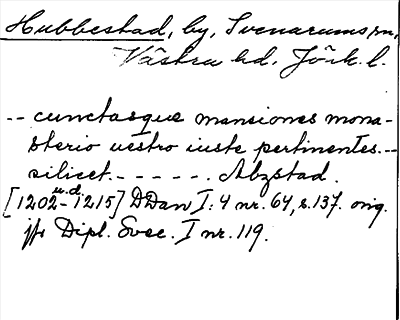 Hubbestad, by, Svenarums sn,
Västra hd, Jönk. l.
-- cunctasque mansiones mona-
sterio uestro iuste pertinentes. --
silicet. - - - - - . Abzstad.
u.d.
[1202-1215] DDan I: 4 nr. 64, s. 137. orig.
jfr Dipl. Svec. I nr. 119.